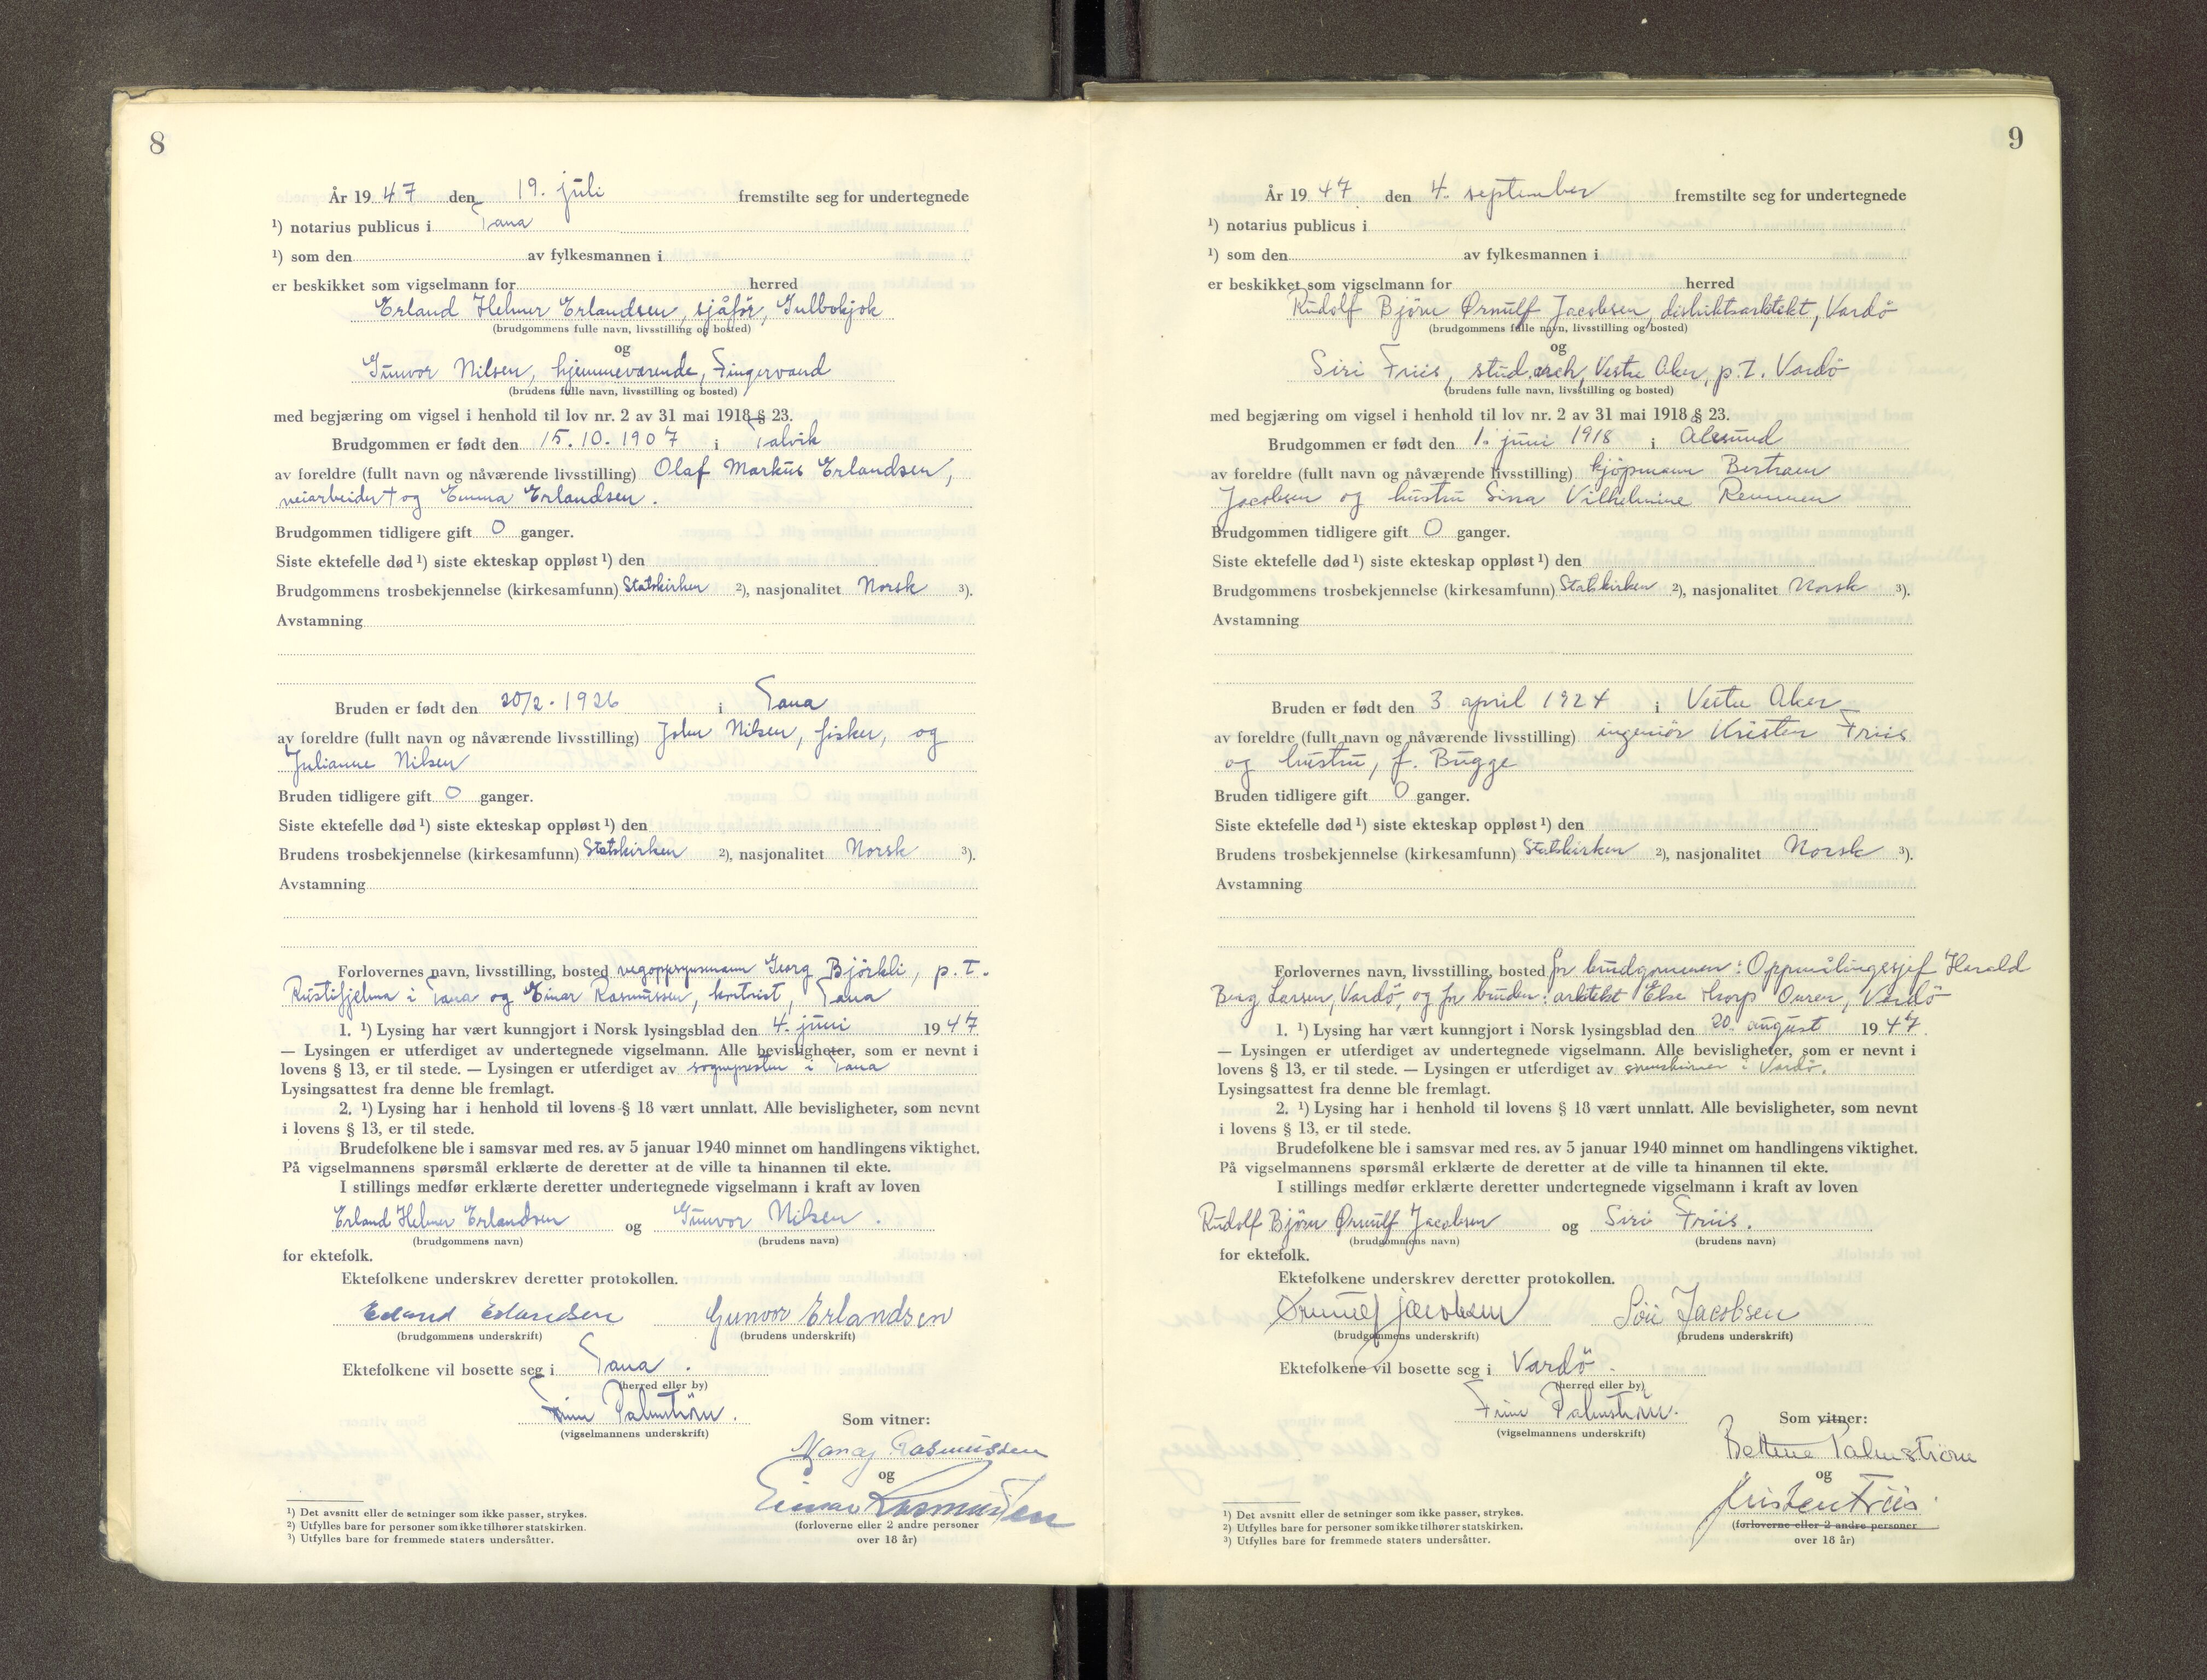 8
År 19 47 den 19. juli fremstilte seg for undertegnede
¹) notarius publicus i Tana
¹) som den av fylkesmannen i
er beskikket som vigselmann for herred
Erland Helmer Erlandsen, sjåfør, Gulbokjok
(brudgommens fulle navn, livsstilling og bosted)
og
Gunvor Nilsen, hjemmeværende, Fingervand
(brudens fulle navn, livsstilling og bosted)
med begjæring om vigsel i henhold til lov nr. 2 av 31 mai 1918 § 23.
Brudgommen er født den 15.10.1907 i Talvik
av foreldre (fullt navn og nåværende livsstilling) Olaf Markus Erlandsen,
veiarbeider † og Emma Erlandsen.
Brudgommen tidligere gift 0 ganger.
Siste ektefelle død ¹) siste ekteskap oppløst ¹) den
Brudgommens trosbekjennelse (kirkesamfunn) Statskirken ²), nasjonalitet Norsk ³).
Avstamning
Bruden er født den 20/2. 1926 i Tana
av foreldre (fullt navn og nåværende livsstilling) John Nilsen, fisker, og
Julianne Nilsen
Bruden tidligere gift 0 ganger.
Siste ektefelle død ¹) siste ekteskap oppløst ¹) den
Brudens trosbekjennelse (kirkesamfunn) Statskirken ²), nasjonalitet Norsk ³).
Avstamning
Forlovernes navn, livsstilling, bosted vegoppsynsmann Georg Björkli, p.t.
Rustifjelma i Tana og Einar Rasmussen, kontrist, Tana
1. ¹) Lysing har vært kunngjort i Norsk lysingsblad den 4. juni 19 47
— Lysingen er utferdiget av undertegnede vigselmann. Alle bevisligheter, som er nevnt i
lovens § 13, er til stede. — Lysingen er utferdiget av sognepresten i Tana
Lysingsattest fra denne ble fremlagt.
2. ¹) Lysing har i henhold til lovens § 18 vært unnlatt. Alle bevisligheter, som nevnt
i lovens § 13, er til stede.
Brudefolkene ble i samsvar med res. av 5 januar 1940 minnet om handlingens viktighet.
På vigselmannens spørsmål erklærte de deretter at de ville ta hinannen til ekte.
I stillings medfør erklærte deretter undertegnede vigselmann i kraft av loven
Erland Helmer Erlandsen og Gunvor Nilsen.
(brudgommens navn) (brudens navn)
for ektefolk.
Ektefolkene underskrev deretter protokollen.
Erland Erlandsen Gunvor Erlandsen
(brudgommens underskrift) (brudens underskrift)
Ektefolkene vil bosette seg i Tana.
(herred eller by)
Finn Palmström.
(vigselmannens underskrift)
Som vitner:
Rasmussen
og
Einar Rasmussen
(forloverne eller 2 andre personer
over 18 år)
¹) Det avsnitt eller de setninger som ikke passer, strykes.
²) Utfylles bare for personer som ikke tilhører statskirken.
³) Utfylles bare for fremmede staters undersåtter.
9
År 19 47 den 4. september fremstilte seg for undertegnede
¹) notarius publicus i
¹) som den av fylkesmannen i
er beskikket som vigselmann for herred
Rudolf Björn Ørnulf Jacobsen, distriktsarkitekt, Vardö
(brudgommens fulle navn, livsstilling og bosted)
og
Siri Friis, stud.arch, Vestre Aker, p.t. Vardö
(brudens fulle navn, livsstilling og bosted)
med begjæring om vigsel i henhold til lov nr. 2 av 31 mai 1918 § 23.
Brudgommen er født den 1. juni 1918 i Ålesund
av foreldre (fullt navn og nåværende livsstilling) kjöpmann Bertram
Jacobsen og hustru Sina Vilhelmine Remmen
Brudgommen tidligere gift 0 ganger.
Siste ektefelle død ¹) siste ekteskap oppløst ¹) den
Brudgommens trosbekjennelse (kirkesamfunn) Statskirken ²), nasjonalitet Norsk ³).
Avstamning
Bruden er født den 3 april 1924 i Vestre Aker
av foreldre (fullt navn og nåværende livsstilling) ingeniör Kristen Friis
og hustru, f. Bugge
Bruden tidligere gift 0 ganger.
Siste ektefelle død ¹) siste ekteskap oppløst ¹) den
Brudens trosbekjennelse (kirkesamfunn) Statskirken ²), nasjonalitet Norsk ³).
Avstamning
Forlovernes navn, livsstilling, bosted for brudgommen: Oppmålingssjef Harald
Berg Larsen, Vardö, og for bruden: arkitekt Else Thorp Ouren, Vardö
1. ¹) Lysing har vært kunngjort i Norsk lysingsblad den 20. august 19 47.
— Lysingen er utferdiget av undertegnede vigselmann. Alle bevisligheter, som er nevnt i
lovens § 13, er til stede. — Lysingen er utferdiget av i Vardö.
Lysingsattest fra denne ble fremlagt.
2. ¹) Lysing har i henhold til lovens § 18 vært unnlatt. Alle bevisligheter, som nevnt
i lovens § 13, er til stede.
Brudefolkene ble i samsvar med res. av 5 januar 1940 minnet om handlingens viktighet.
På vigselmannens spørsmål erklærte de deretter at de ville ta hinannen til ekte.
I stillings medfør erklærte deretter undertegnede vigselmann i kraft av loven
Rudolf Björn Ørnulf Jacobsen og Siri Friis.
(brudgommens navn) (brudens navn)
for ektefolk.
Ektefolkene underskrev deretter protokollen.
Ørnulf Jacobsen Siri Jacobsen
(brudgommens underskrift) (brudens underskrift)
Ektefolkene vil bosette seg i Vardö.
(herred eller by)
Finn Palmström.
(vigselmannens underskrift)
Som vitner:
Bettina Palmström
og
Kristen Friis.
(forloverne eller 2 andre personer
over 18 år)
¹) Det avsnitt eller de setninger som ikke passer, strykes.
²) Utfylles bare for personer som ikke tilhører statskirken.
³) Utfylles bare for fremmede staters undersåtter.